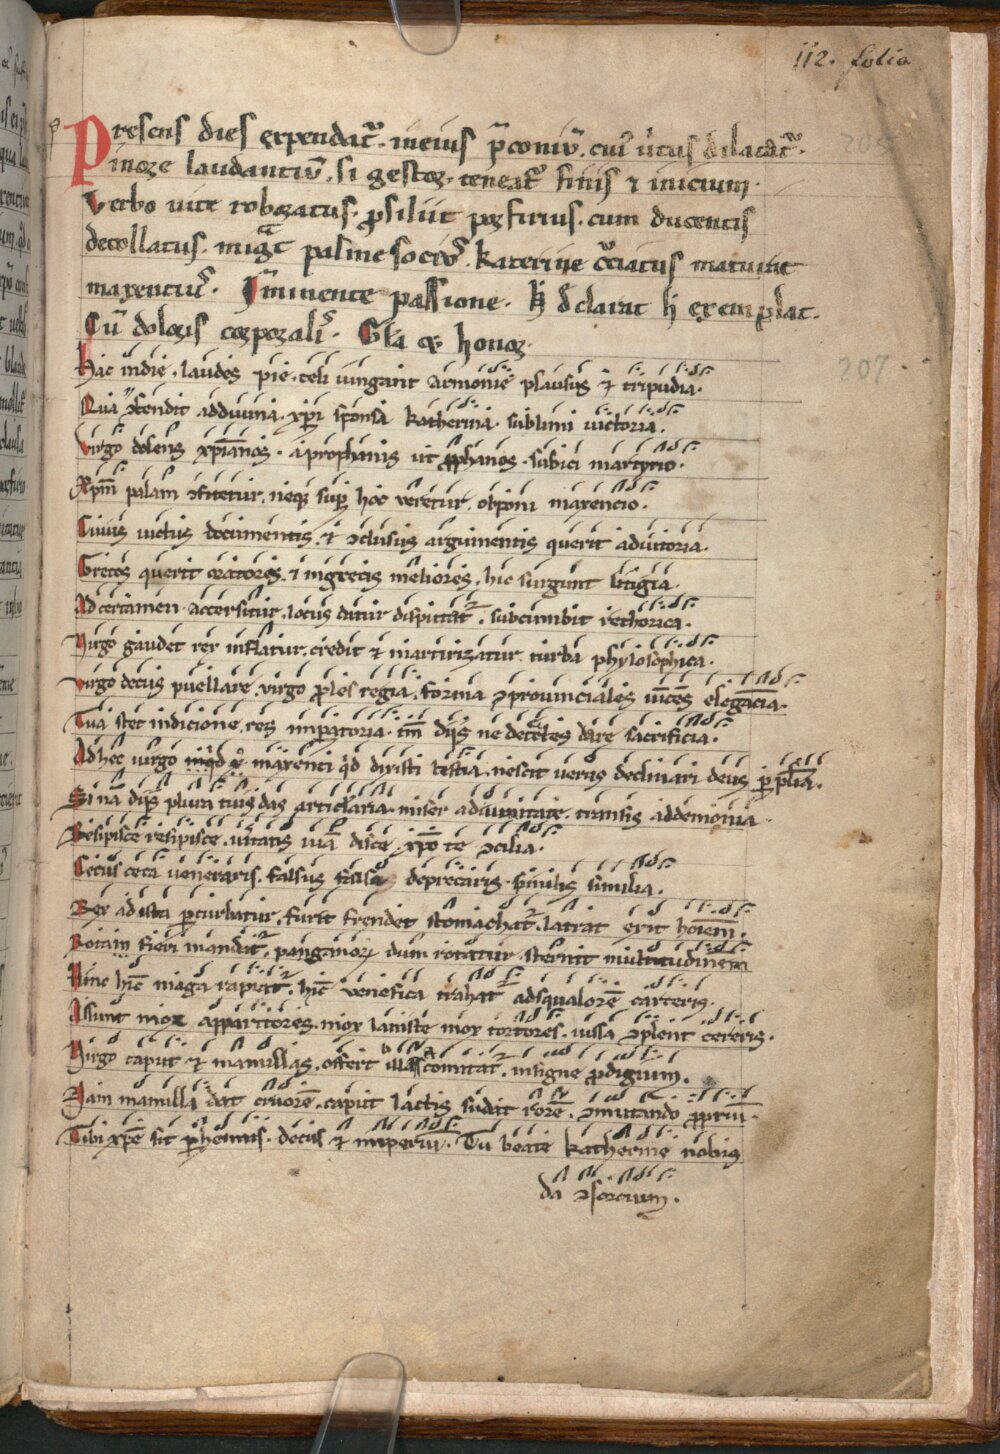 112. folia
Presens dies expendat᷑. in eius p̄coniū. cui᷒ v̓tus dilatat᷑.
205
in ore laudantiū. si gestoꝝ. teneat᷑ finis ⁊ inicium.
Verbo uite roboratus. ꝓsiliit porfirius. cum ducentis
decollatus. migͣt palme socius. Katerine cͦciatus maturat
maxentius. Imminente passione. h̄ declarat h̄ exemplat.
Cū doloris corporalis. Gl̄a ⁊ honor.
Hac in die. laudes pie. celi iungant armonie plausus ⁊ tripudia.
207
Qua ꝯtendit ad diuina. xp̄i sponsa katherina. sublimi uictoria.
Virgo dolens xp̄ianos. a prophanis ut ꝓphanos. subici martyrio.
Xp̄m palam ꝯfitetur. neq; suꝑ hoc veretur. obponi maxencio.
Cuius uictus documentis. ⁊ ꝯclusus argumentis querit adiutoria.
Grecos querit oratores. ⁊ in grecis meliores. hic surgunt litigia.
Ad certamen accersitur. locus datur disputat᷑. subcumbit rethorica.
Virgo gaudet rex inflatur. credit ⁊ martirizatur. turba phylosophica.
Virgo decus puellare. virgo ꝓles regia. forma ꝯprouinciales uīces elegācia.
Tua stet in dicione. res imꝑatoria. tm̄ diis ne detrectes dare sacrificia.
Ad hec virgo inqͥd maxenci qd̄ dixisti testia. nescit verus declinari deus ꝑ plīa.
Si nā diis plura tuis das articlaria. miser a diuinitate. transis ad demonia.
Resipisce resipisce. ūitatis uiā disce. xp̄o te ꝯcilia.
Cecus ceca veneraris. falsus falsa deprecaris. similis similia.
Rex ad ista ꝑturbatur. furit frendet stomachat᷑. latrat erit hoīem.
Rotam fieri mandat᷑. panganoꝝ dum rotatur. sternit multitudinem
Hinc hic maga rapiat᷑. hīc venefica trahat᷑ ad squalorē carceris.
Assunt mox apparitores. mox laniste mox tortores. iussa ꝯplent cereris.
Virgo caput ⁊ mamillas. offert comitat᷑. insigne ꝓdigium.
Nam mamilla dat cruorē. caput lactis sudat rorē. ꝯmutando ꝓpriū.
Tibi xp̄e sit ꝑhennis. decus ⁊ imperiū. Tu beate katherine nobis
da ꝯsorcium.